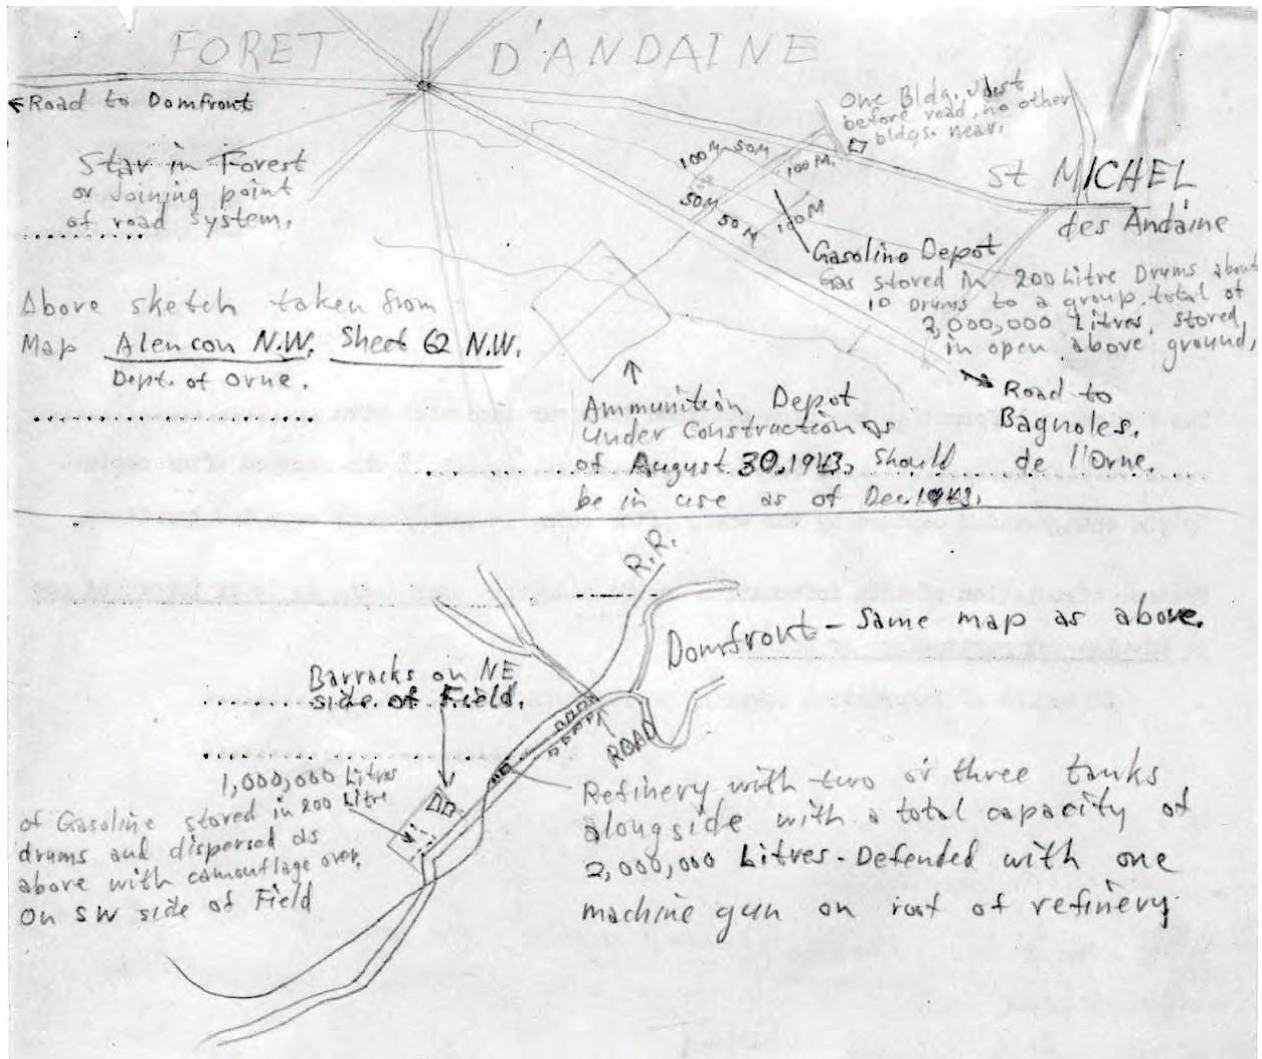 FORET D'ANDAINE
Road to Domfront
Star in Forest
or Joining point
of road system.
One Bldg. Just
before road, no other
bldgs. near.
100 M
50M
100 M.
50M
50 M
10 M
St MICHEL
des Andaine
Gasoline Depot
Gas stored in 200 Litre Drums about
10 Drums to a group. total of
2,000,000 Litres, stored
in open above ground,
Above sketch taken from
Map Alencon N.W. Sheet 62 N.W.
Dept. of Orne.
Road to
Bagnoles.
de l'Orne.
Ammunition Depot
Under Construction as
of August 30, 1943, Should
be in use as of Dec. 1943.
R.R.
Domfront - Same map as above.
Barracks on NE
side of Field.
ROAD
1,000,000 Litres
of Gasoline stored in 200 Litre
drums and dispersed as
above with camouflage over.
On SW side of Field
Refinery with two or three tanks
alongside with a total capacity of
2,000,000 Litres - Defended with one
machine gun on roof of refinery